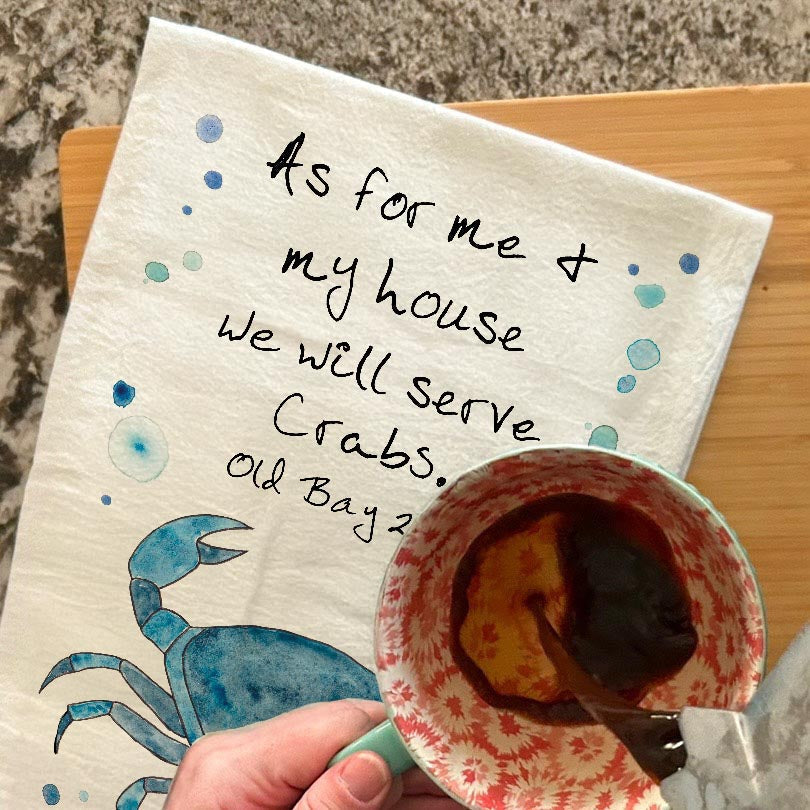 As for me &
my house
We will serve
Crabs.
Old Bay 2